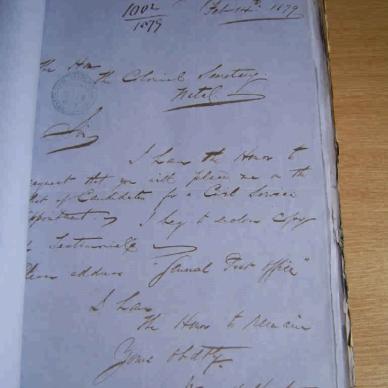 1002 Feb 14th 1879
1879
The Hon
The Colonial Secretary
Natal
Sir
I have the Honor to
request that you will place me on the
list of Candidates for a Civil Service
appointment. I beg to enclose copy
of Testimonials
Please address "General Post Office"
I have
the Honor to remain
Yours Obdtly.